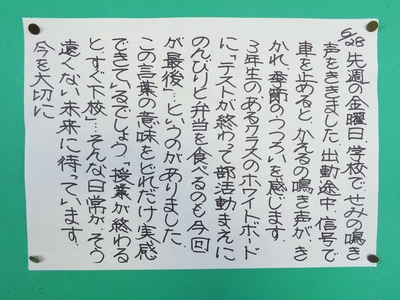 6/28 先週の金曜日、学校で、せみの鳴き
声をききました。出勤途中、信号で
車を止めると、かえるの鳴き声がき
かれ、季節のうつろいを感じます。
3年生のあるクラスのホワイトボード
に「テストが終わって部活動まえに
のんびりと弁当を食べるのも今回
が最後」…というのがありました。
この言葉の意味をどれだけ実感
できているでしょう。「授業が終わる
と、すぐ下校」…そんな日常が、そう
遠くない未来に待っています。
今を大切に